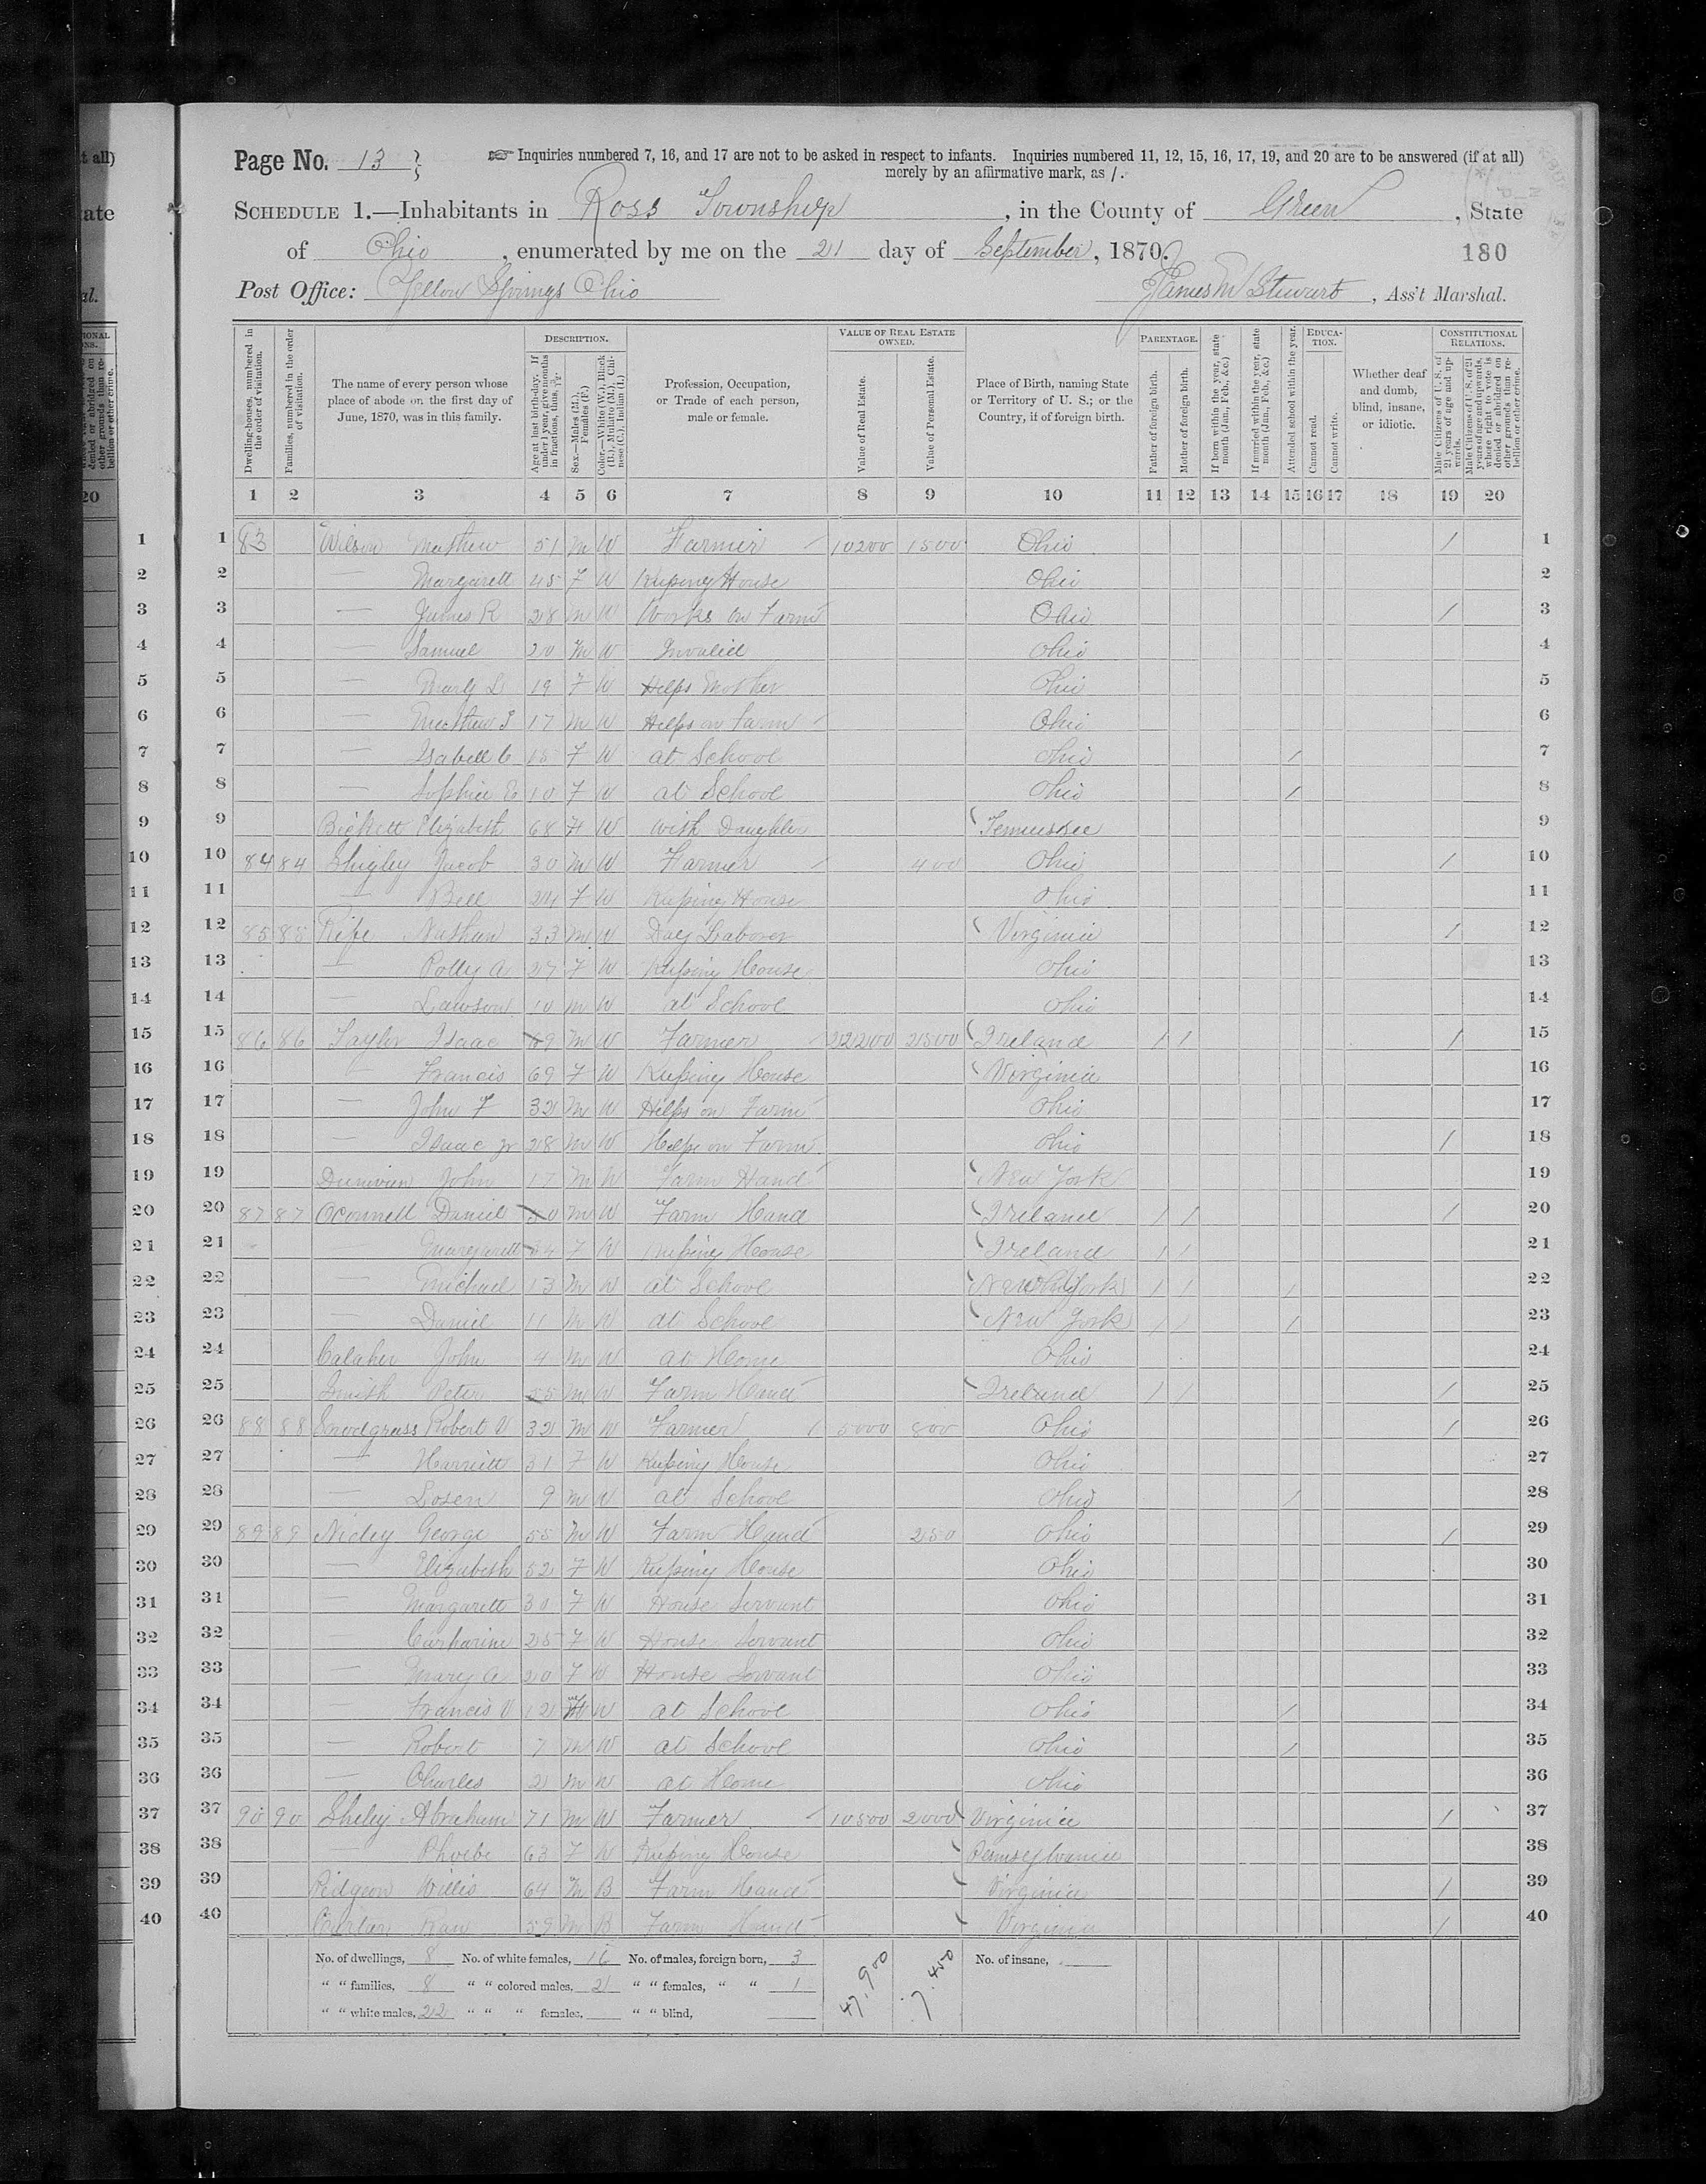 Page No. 13
☞ Inquiries numbered 7, 16, and 17 are not to be asked in respect to infants. Inquiries numbered 11, 12, 15, 16, 17, 19, and 20 are to be answered (if at all)
merely by an affirmative mark, as /.
SCHEDULE 1.—Inhabitants in Ross Township, in the County of Green, State
of Ohio, enumerated by me on the 21 day of September, 1870.
180
Post Office: Yellow Springs Ohio James M Stewart, Ass't Marshal.
Dwelling-houses, numbered in the order of visitation.
Families, numbered in the order of visitation.
The name of every person whose place of abode on the first day of June, 1870, was in this family.
DESCRIPTION.
Age at last birth-day. If under 1 year, give months in fractions, thus, 3/12.
Sex.—Males (M.), Females (F.)
Color.—White (W.), Black (B.), Mulatto (M.), Chinese (C.), Indian (I.)
Profession, Occupation, or Trade of each person, male or female.
VALUE OF REAL ESTATE OWNED.
Value of Real Estate.
Value of Personal Estate.
Place of Birth, naming State or Territory of U. S.; or the Country, if of foreign birth.
PARENTAGE.
Father of foreign birth.
Mother of foreign birth.
If born within the year, state month (Jan., Feb., &c.)
If married within the year, state month (Jan., Feb., &c.)
Attended school within the year.
EDUCATION.
Cannot read.
Cannot write.
Whether deaf and dumb, blind, insane, or idiotic.
CONSTITUTIONAL RELATIONS.
Male Citizens of U. S. of 21 years of age and upwards.
Male Citizens of U. S. of 21 years of age and upwards, whose right to vote is denied or abridged on other grounds than rebellion or other crime.
1 2 3 4 5 6 7 8 9 10 11 12 13 14 15 16 17 18 19 20
1 83 Wilson Mathew 51 M W Farmer 10200 1500 Ohio / 1
2 — Margarett 45 F W Keeping House Ohio 2
3 — James R 28 M W Works on Farm Ohio / 3
4 — Samuel 20 M W Invalid Ohio 4
5 — 19 F W Helps Mother Ohio 5
6 — Mathew 17 M W Helps on farm Ohio 6
7 — Isabell C 15 F W at School Ohio / 7
8 — Sophia E 10 F W at School Ohio / 8
9 Bickett Elizabeth 68 F W With Daughter Tennessee 9
10 84 84 Shigley Jacob 30 M W Farmer 400 Ohio / 10
11 — Bell 24 F W Keeping House Ohio 11
12 85 85 Rife Nathan 33 M W Day Laborer Virginia / 12
13 — Polly A 27 F W Keeping House Ohio 13
14 — Lawson 10 M W at School Ohio 14
15 86 86 Taylor Isaac 69 M W Farmer 22200 2500 Ireland / / / 15
16 — Francis 69 F W Keeping House Virginia 16
17 — John F 32 M W Helps on Farm Ohio 17
18 — Isaac Jr 28 M W Helps on Farm Ohio / 18
19 John 17 M W Farm Hand New York 19
20 87 87 Oconnell Daniel M W Farm Hand Ireland / / / 20
21 — Margarett F W Keeping House Ireland / / 21
22 — Michael 13 M W at School New York / / / 22
23 — Daniel 11 M W at School New York / / / 23
24 Calaher John 4 M W at Home Ohio 24
25 Smith Peter 55 M W Farm Hand Ireland / / / 25
26 88 88 Snodgrass Robert 32 M W Farmer 5000 800 Ohio / 26
27 — Harriett 31 F W Keeping House Ohio 27
28 — Losen 9 M W at School Ohio / 28
29 89 89 Nidey George 55 M W Farm Hand 250 Ohio / 29
30 — Elizabeth 52 F W Keeping House Ohio 30
31 — Margarett 30 F W House Servant Ohio 31
32 — Catharine 25 F W House Servant Ohio 32
33 — Mary A 20 F W House Servant Ohio 33
34 — Francis 12 W at School Ohio / 34
35 — Robert 7 M W at School Ohio / 35
36 — Charles 2 M W at Home Ohio 36
37 90 90 Sheley Abraham 71 M W Farmer 10500 2000 Virginia / 37
38 — Phoebe 63 F W Keeping House Pennsylvania 38
39 Pidgeon Willis 64 M B Farm Hand Virginia / 39
40 59 M B Farm Hand Virginia / 40
No. of dwellings, 8 No. of white females, 16 No. of males, foreign born, 3 47.900 7.450 No. of insane,
" " families, 8 " " colored males, 2 " " females, " " 1
" " white males, 22 " " " females, " " blind,